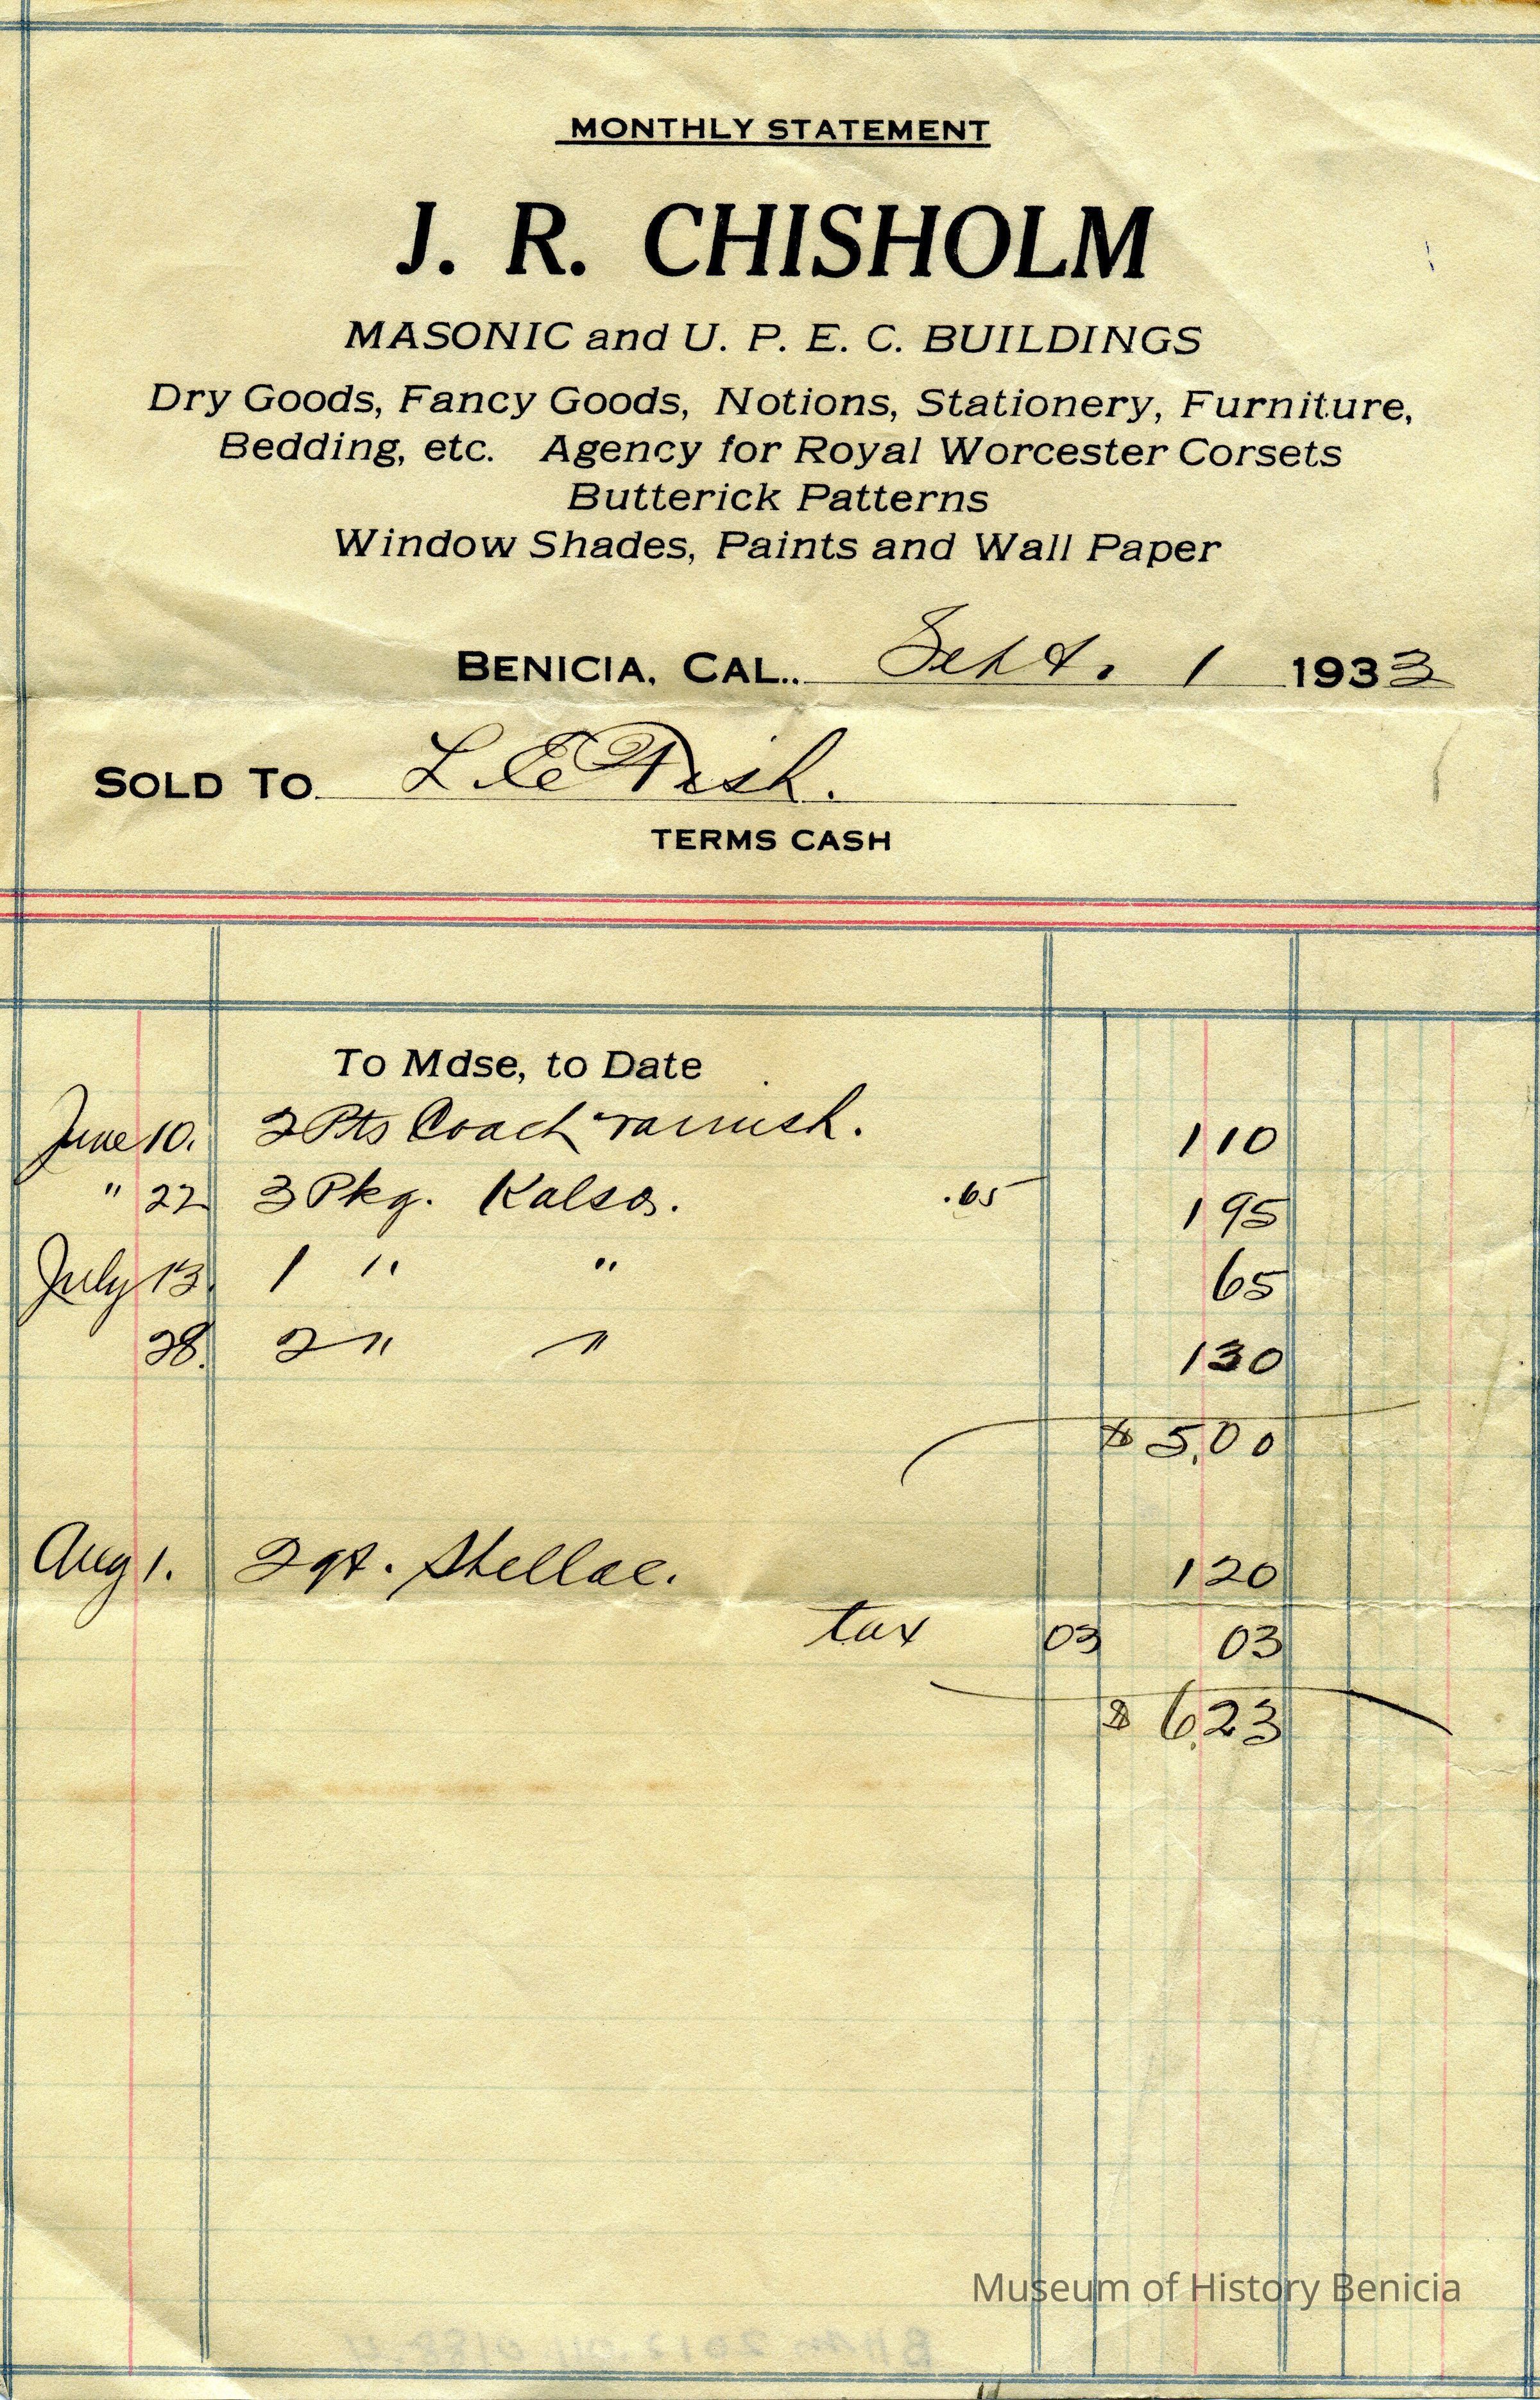 MONTHLY STATEMENT
J. R. CHISHOLM
MASONIC and U. P. E. C. BUILDINGS
Dry Goods, Fancy Goods, Notions, Stationery, Furniture,
Bedding, etc. Agency for Royal Worcester Corsets
Butterick Patterns
Window Shades, Paints and Wall Paper
BENICIA, CAL., Sept. 1 1933
SOLD TO L. E. Fish.
TERMS CASH
To Mdse, to Date
June 10. 2 Pts Coach varnish. 1 10
" 22 3 Pkg. Kalso. .65 1 95
July 13. 1 " " 65
28. 2 " " 1 30
$ 5.00
Aug 1. 2 qt. Shellac. 1 20
tax 03 03
$ 6.23
Museum of History Benicia